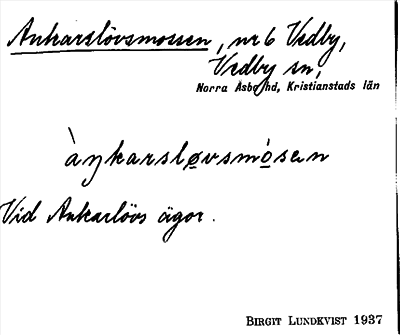 Ankarslövsmossen, nr 6 Vedby,
Vedby sn,
Norra Åsbo hd, Kristianstads län
àŋkarsløvsmòsen
Vid Ankarlövs ägor.
BIRGIT LUNDKVIST 1937